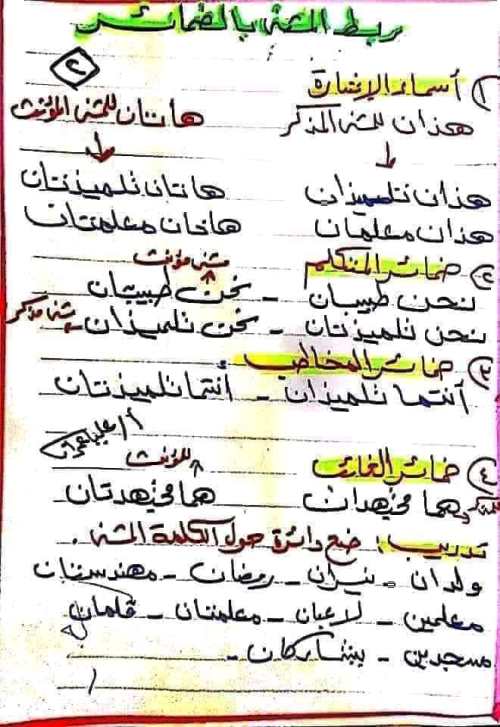 ربط المثنى بالضمائر
٢
١ أسماء الإشارة
هذان للمثنى المذكر هاتان للمثنى المؤنث
هذان تلميذان هاتان تلميذتان
هذان معلمان هاتان معلمتان
٢ ضمائر المتكلم مثنى مؤنث
نحن طبيبان - نحن طبيبتان
نحن تلميذتان - نحن تلميذان مثنى مذكر
٣ ضمائر المخاطب
أنتما تلميذان - أنتما تلميذتان
٤ ضمائر الغائب للمؤنث
هما مجتهدان هما مجتهدتان
تدريب: ضع دائرة حول الكلمة المثنى.
ولدان - نيران - رمضان - مهندستان
معلمين - لاعبان - معلمتان - قلمان
مسجدين - يتشاركان -